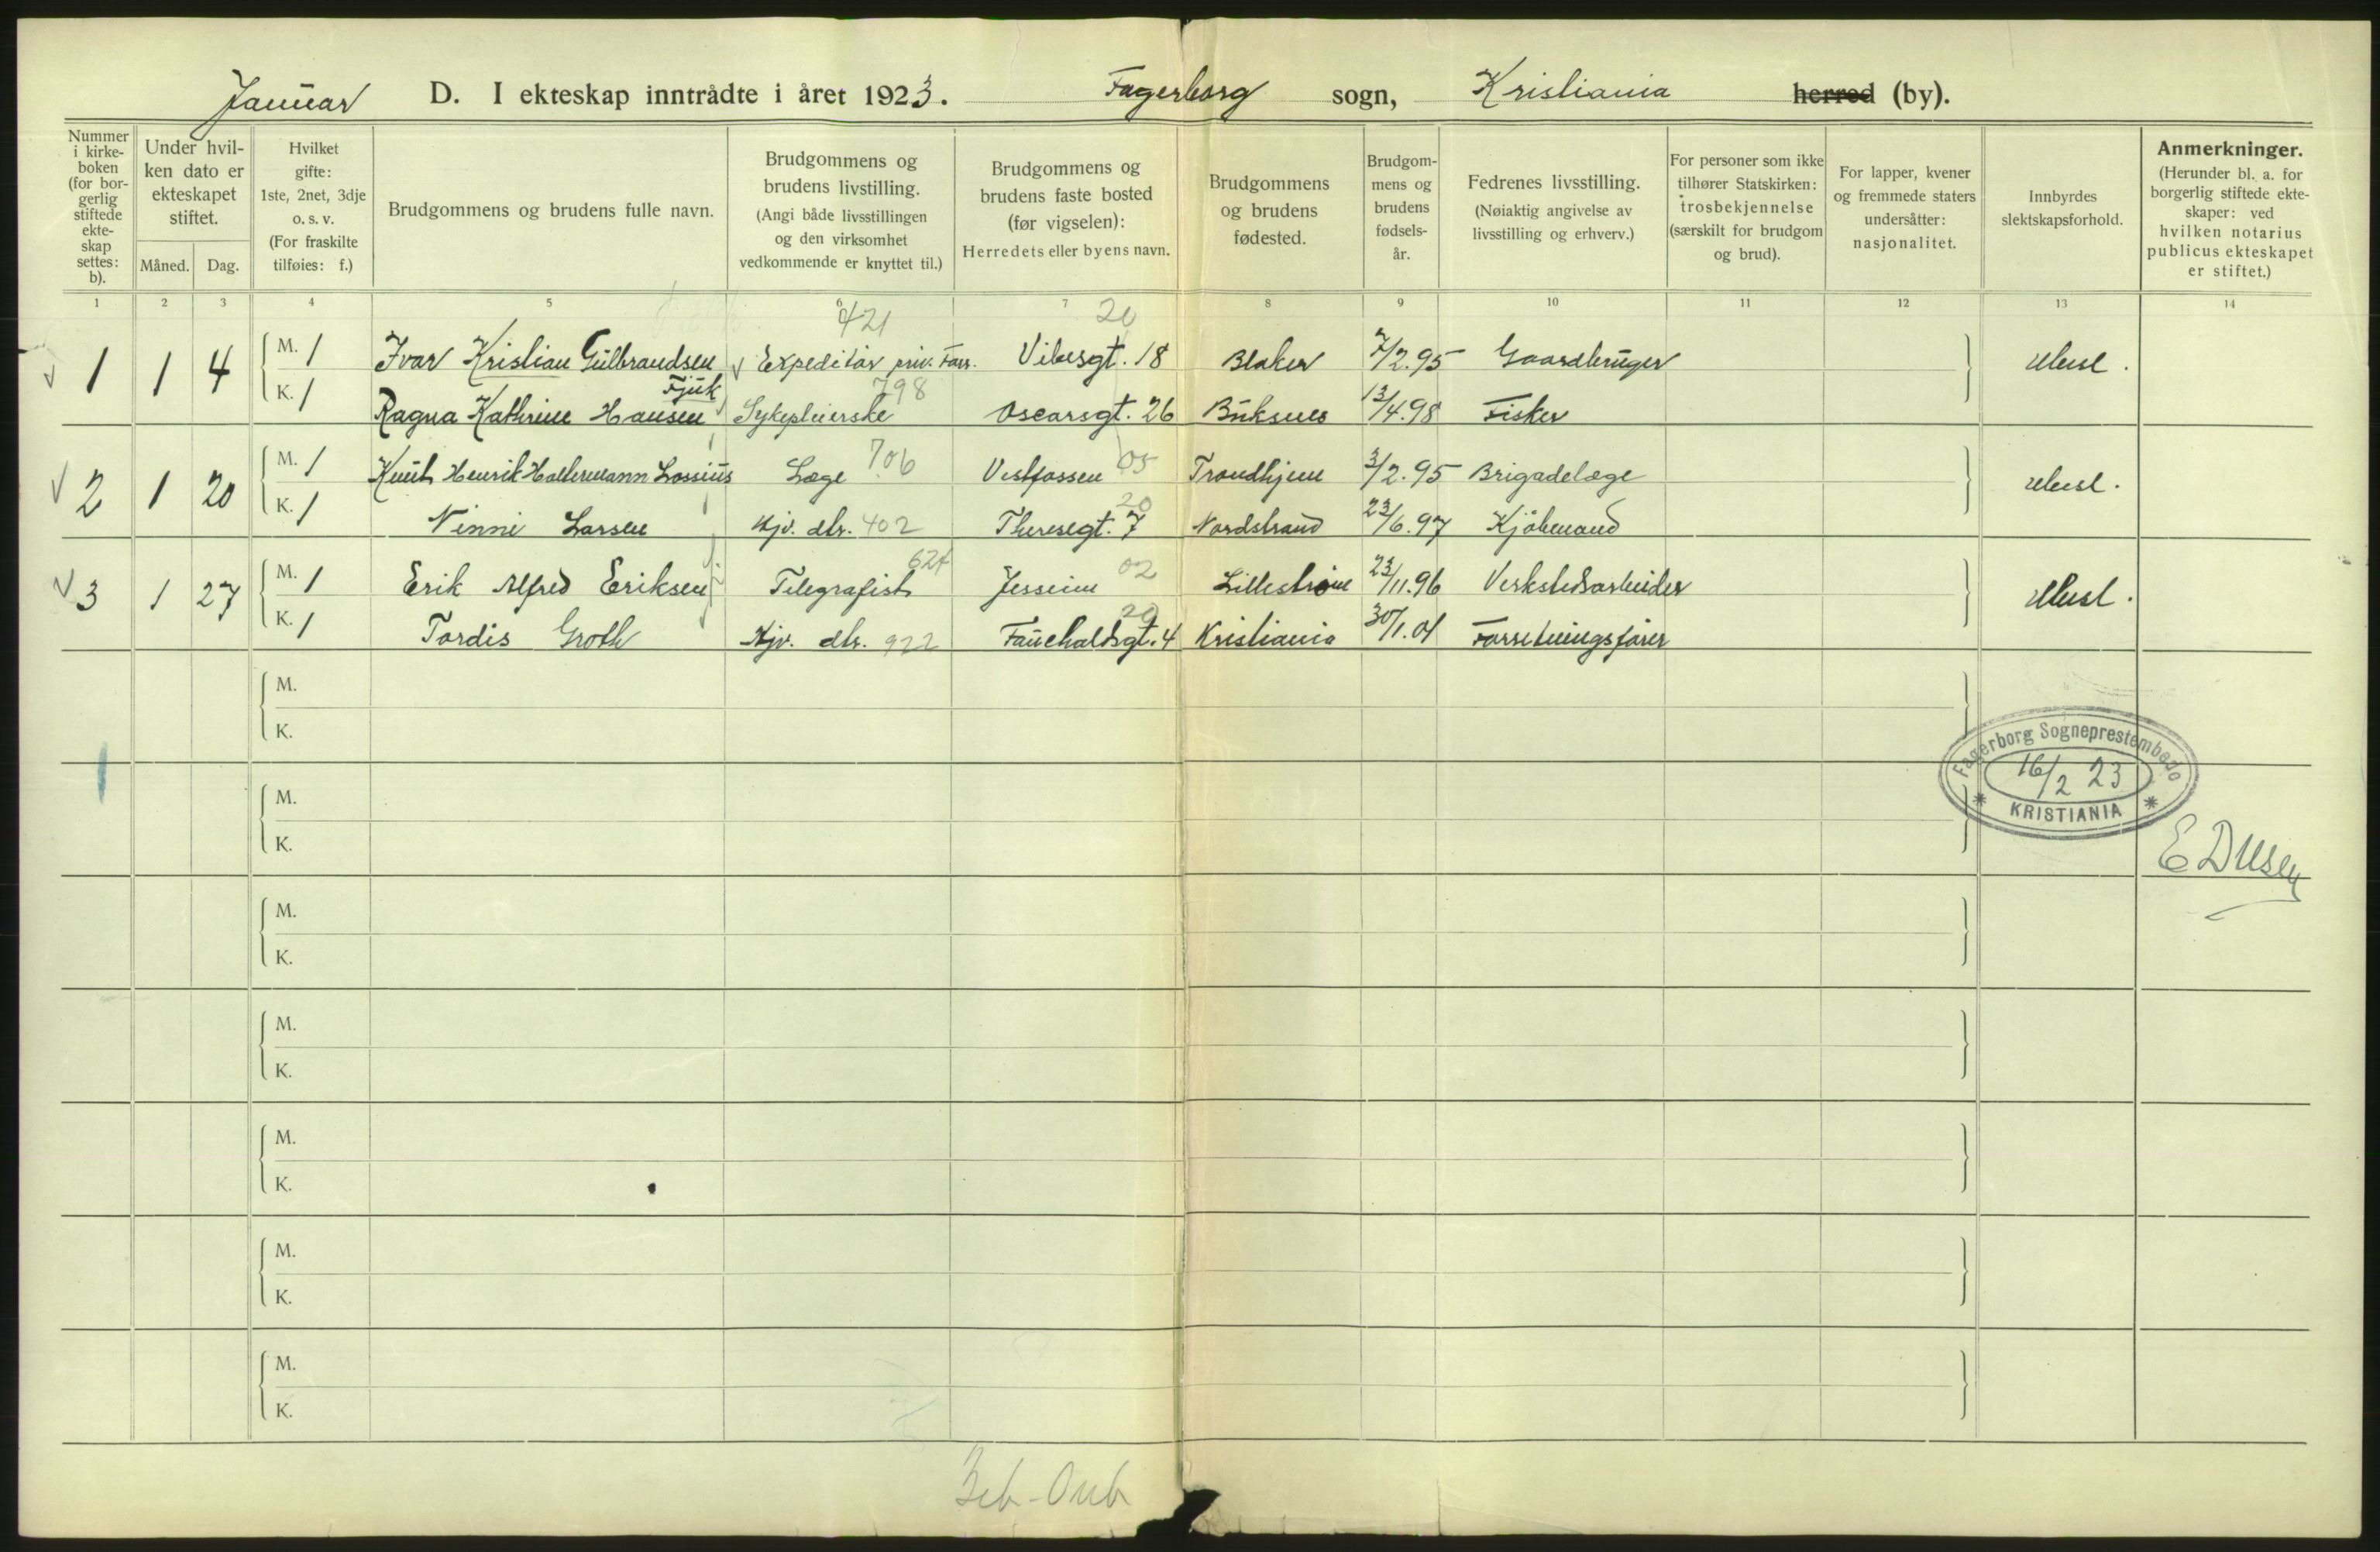 Januar D. I ekteskap inntrådte i året 1923. Fagerborg sogn, Kristiania herred (by).
Nummer i kirkeboken (for borgerlig stiftede ekteskap settes: b).
Under hvilken dato er ekteskapet stiftet.
Måned. Dag.
Hvilket gifte: 1ste, 2net, 3dje o. s. v. (For fraskilte tilføies: f.)
Brudgommens og brudens fulle navn.
Brudgommens og brudens livstilling. (Angi både livsstillingen og den virksomhet vedkommende er knyttet til.)
Brudgommens og brudens faste bosted (før vigselen): Herredets eller byens navn.
Brudgommens og brudens fødested.
Brudgommens og brudens fødsels-år.
Fedrenes livsstilling. (Nøiaktig angivelse av livsstilling og erhverv.)
For personer som ikke tilhører Statskirken: trosbekjennelse (særskilt for brudgom og brud).
For lapper, kvener og fremmede staters undersåtter: nasjonalitet.
Innbyrdes slektskapsforhold.
Anmerkninger. (Herunder bl. a. for borgerlig stiftede ekteskaper: ved hvilken notarius publicus ekteskapet er stiftet.)
1 2 3 4 5 6 7 8 9 10 11 12 13 14
421 20
1 1 4 M. 1 Ivar Kristian Gulbrandsen Expeditør priv. Forr. Vibesgt. 18 Blaker 7/2.95 Gaardbruger Ubesl.
Fjuk 798
K. 1 Ragna Kathrine Hansen Sykepleierske Oscarsgt. 26 Buksnes 13/4.98 Fisker
2 1 20 M. 1 Knut Henrik Lossius Læge 706 Vestfossen 05 Trondhjem 3/2.95 Brigadelæge Ubesl.
20
K. 1 Ninni Larsen Hjv. dtr. 402 Theresegt. 7 Nordstrand 23/6.97 Kjöbmand
3 1 27 M. 1 Erik Alfred Eriksen Telegrafist 624 Jessheim 02 Lillestrøm 23/11.96 Verkstedsarbeider Ubesl.
20
K. 1 Tordis Groth Hjv. dtr. 922 Fauchaldsgt. 4 Kristiania 30/1.01 Forretningsfører
M.
K.
Fagerborg Sogneprestembede
16/2 23
KRISTIANIA
M.
K.
M.
K.
M.
K.
M.
K.
M.
K.
M.
K.